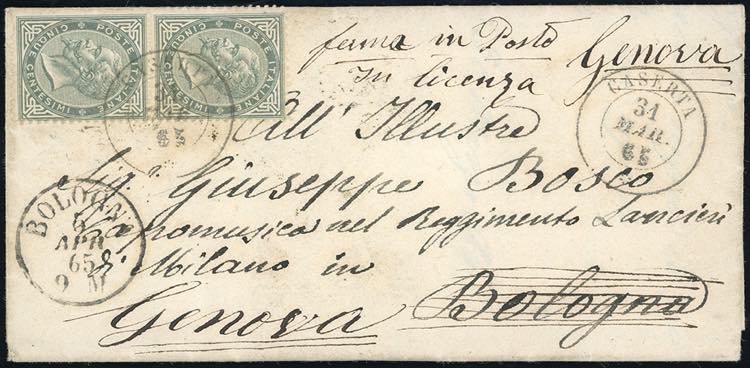 POSTE ITALIANE CINQUE CENTESIMI
POSTE ITALIANE CINQUE CENTESIMI
ferma in Posto Genova
In licenza
CASERTA
31
MAR.
65
All' Illustre
Sig. Giuseppe Bosco
Capomusica nel Reggimento Lancieri
di Milano in Bologna
Genova
BOLOGNA
APR
65
9 M